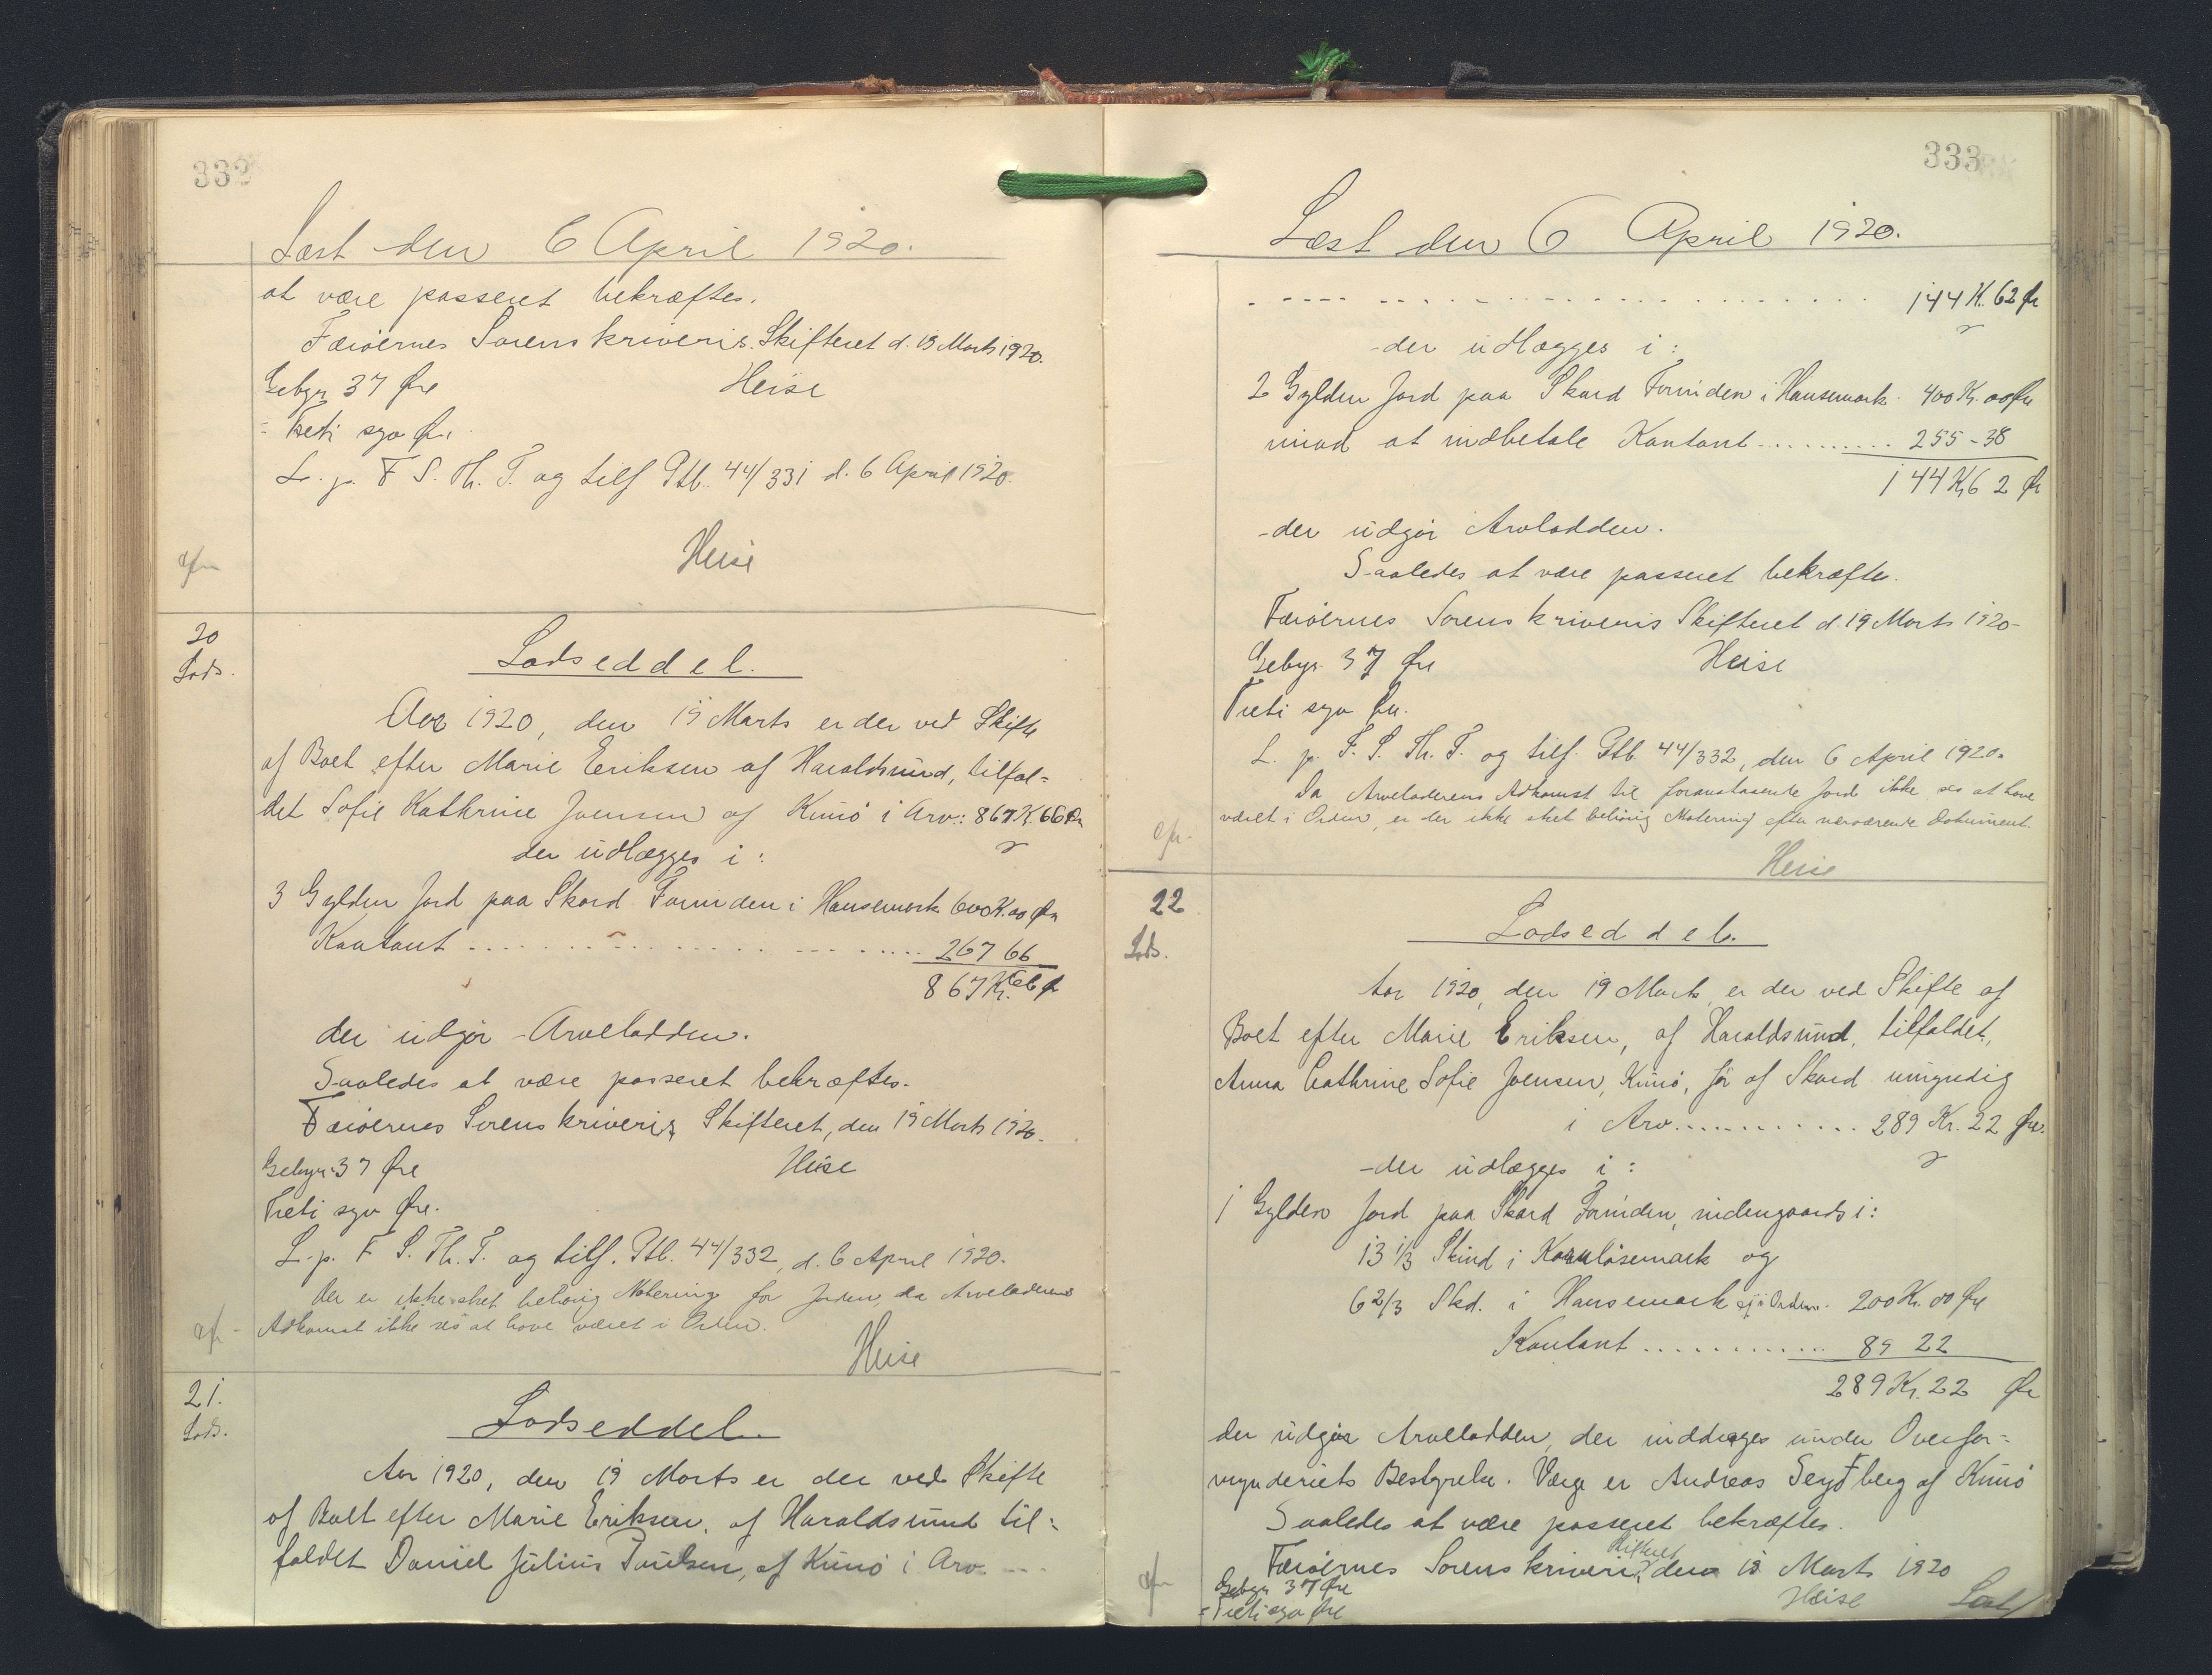 332
Læst den 6 April 1920.
at være passeret bekræftes.
Færøernes Sorenskriveris Skifteret d. 19 Marts 1920.
Gebyr 37 Øre Heise
= Treti syv Øre
L. p. F. S. Th. T. og tilf Ptb. 44/331 d. 6 April 1920.
Heise
20
Lods.
Lodseddel.
Aar 1920, den 19 Marts er der ved Skifte
af Boet efter Marie Eriksen af Haraldsund, tilfal=
det Sofie Kathrine Joensen af Kunø i Arv: 867 K. 66 Øre
der udlægges i:
3 Gylden Jord paa Skard Forinden i Hausemark 600 K. 00 Øre
Kontant .......... 267 66
867 Kr. 66 Ø
der udgjør Arvelodden.
Saaledes at være passeret bekræftes.
Færøernes Sorenskriveris Skifteret, den 19 Marts 1920.
Gebyr 37 Øre Heise
Treti syv Øre.
L. p. F. S. Th. T. og tilf. Ptb. 44/332, d. 6 April 1920.
Der er ikke sket behørig Notering for Jorden, da Arveladerens
Adkomst ikke ses at have været i Orden.
Heise
21.
Lods.
Lodseddel.
Aar 1920, den 19 Marts er der ved Skifte
af Boet efter Marie Eriksen, af Haraldsund til=
faldet Daniel Julius Poulsen, af Kunø i Arv ...
333
Læst den 6 April 1920.
.......... 144 K. 62 Øre
-der udlægges i:
2 Gylden Jord paa Skard Forinden i Hausemark 400 Kr. 00 Øre
imod at indbetale Kontant .......... 255 - 38
144 Kr 62 Øre
-der udgjør Arvlodden.
Saaledes at være passeret bekræftes.
Færøernes Sorenskriveris Skifteret d. 19 Marts 1920-
Gebyr 37 Øre Heise
Treti syv Øre.
L. p. F. S. Th. T. og tilf. Ptb. 44/332, den 6 April 1920.
Da Arveladerens Adkomst til foranstaaende Jord ikke ses at have
været i Orden, er der ikke sket behørig Notering efter nærværende Dokument.
Heise
22
Lods.
Lodseddel.
Aar 1920, den 19 Marts er der ved Skifte af
Boet efter Marie Eriksen, af Haraldsund, tilfaldet,
Anna Cathrine Sofie Joensen, Kunø, før af Skard umyndig
i Arv .......... 289 Kr. 22 Øre.
-der udlægges i:
1 Gylden Jord paa Skard Forinden, indengaards i:
13 1/3 Skind i Kornløsemark og
6 2/3 Skd. i Hausemark ej i Orden. 200 Kr. 00 Øre
Kontant .......... 89 22
289 Kr. 22 Øre
der udgjør Arvelodden, der inddrages under Overfor=
mynderiets Bestyrelse. Værge er Andreas Seyðberg af Kunø
Saaledes at være passeret bekræftes.
Færøernes Sorenskriveri, Skifteret den 19 Marts 1920
Gebyr 37 Øre Heise
= Treti syv Øre